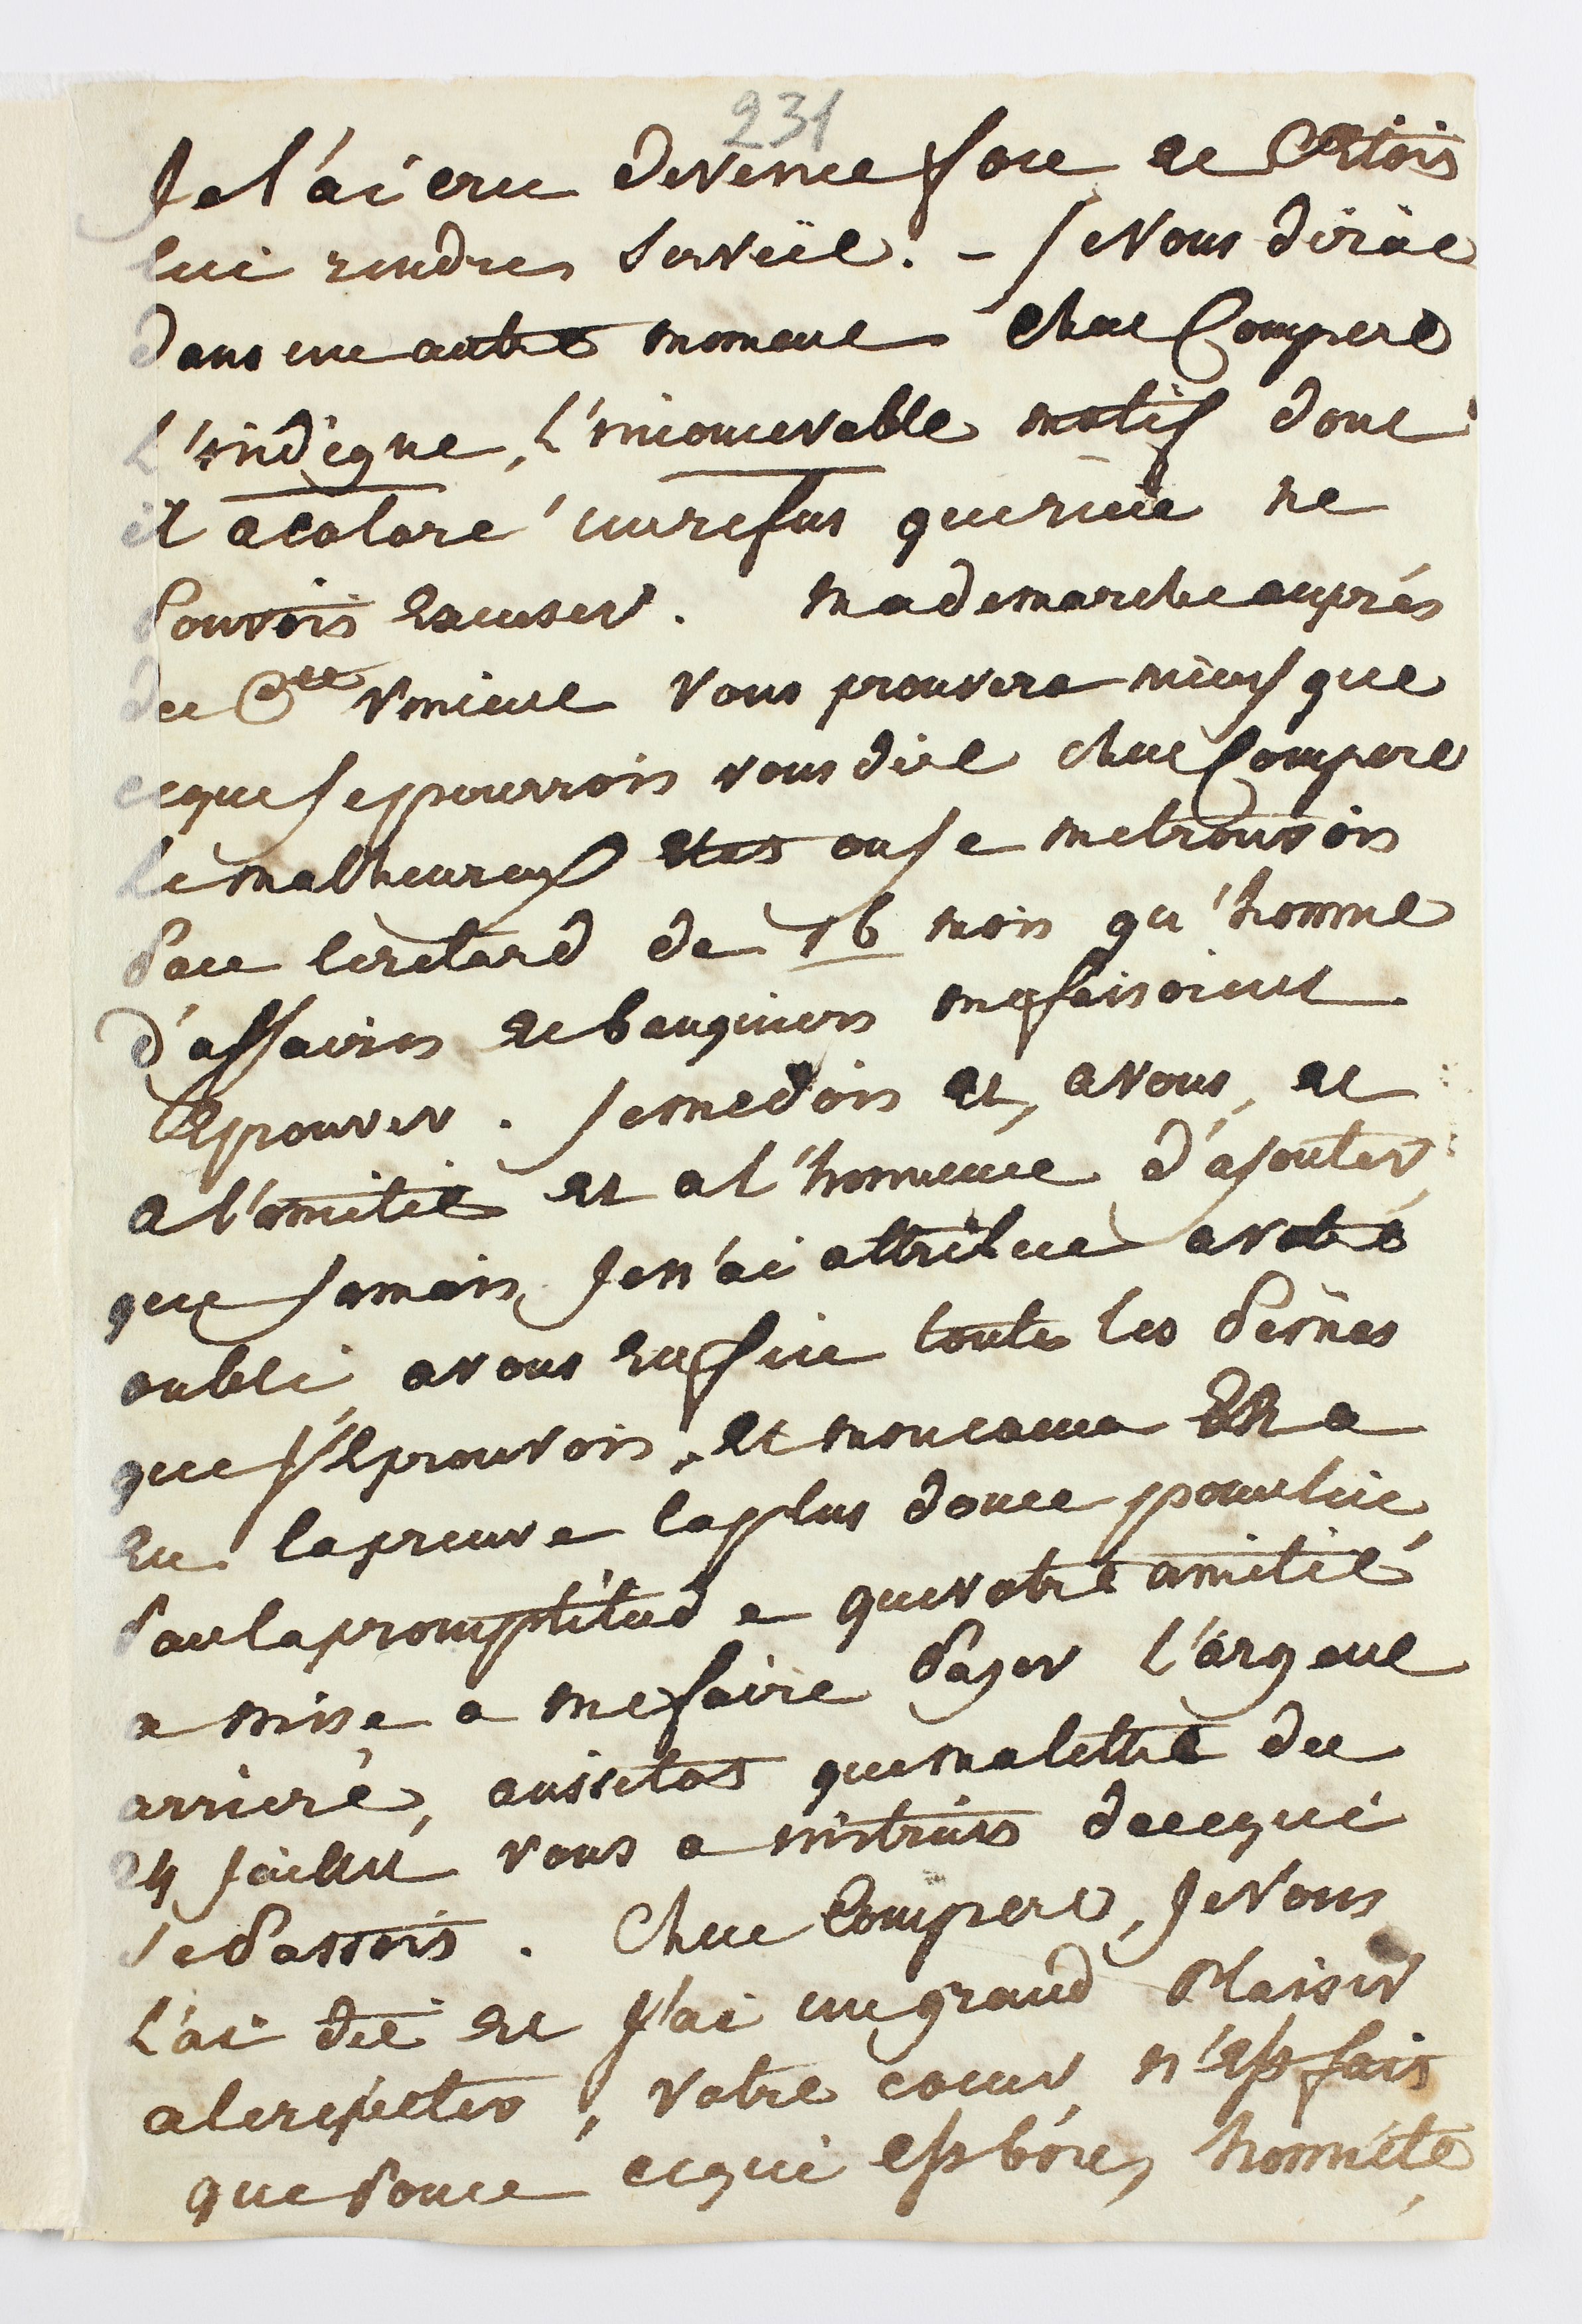 231
Je l'ai cru devenu fou et Croiois
lui rendre service. - Je Vous dirai
dans un autre moment cher Compere
L'indigne, L'inconcevable motif dont
il a coloré un refus que rien ne
Pouvois excuser. ma demarche auprés
du Cte vous prouvera mieux que
ce que Je pourrois vous dire cher Compere
Le malheureux etat ou Je me trouvois
Par le retard de 16 mois qu'homme
d'affaires et banquiers me faisoient
Eprouver. Je me dois et, a vous, et
a l'amitié et a l'honneur d'ajouter,
que Jamais, Je n'ai attribué a votre
oubli, a vous enfin toutes les Peines
que J'eprouvois, et mon coeur En a
eu la preuve la plus douce pour lui,
Par la promptitude que votre amitié
a mise a me faire Payer l'argent
arrieré, aussitot que ma lettre du
24 Juillet vous a instruis de ce qui
se Passois. Cher Compere, Je Vous
L'ai dit et J'ai un grand Plaisir
a le repeter, votre coeur n'est fait
que Pour ce qui est bon, honnête,